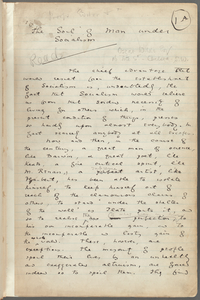 1A
The Soul of Man under
Socialism
The chief advantage that
would result from the establishment
of Socialism is, undoubtedly, the
fact that Socialism would relieve
us from that sordid necessity of
living for others which, in the
present condition of things, presses
so hardly upon almost everybody. In
fact scarcely anyone at all escapes.
Now and then, in the course of
the century, a great man of science
like Darwin, a great poet like
Keats, a fine critical spirit like
M. Renan, a artist, like
Flaubert, has been able to isolate
himself, to keep himself out of
reach of the clamorous claims of
others, to stand "under the shelter
of the wall" as Plato puts it, and
so to realise perfection, to
his own incomparable gain, and to
the incomparable and lasting gain of
the world. These, however, are
exceptions. The majority of people
spoil their lives by an unhealthy
and exaggerated altruism, are forced
indeed so to spoil them. They find